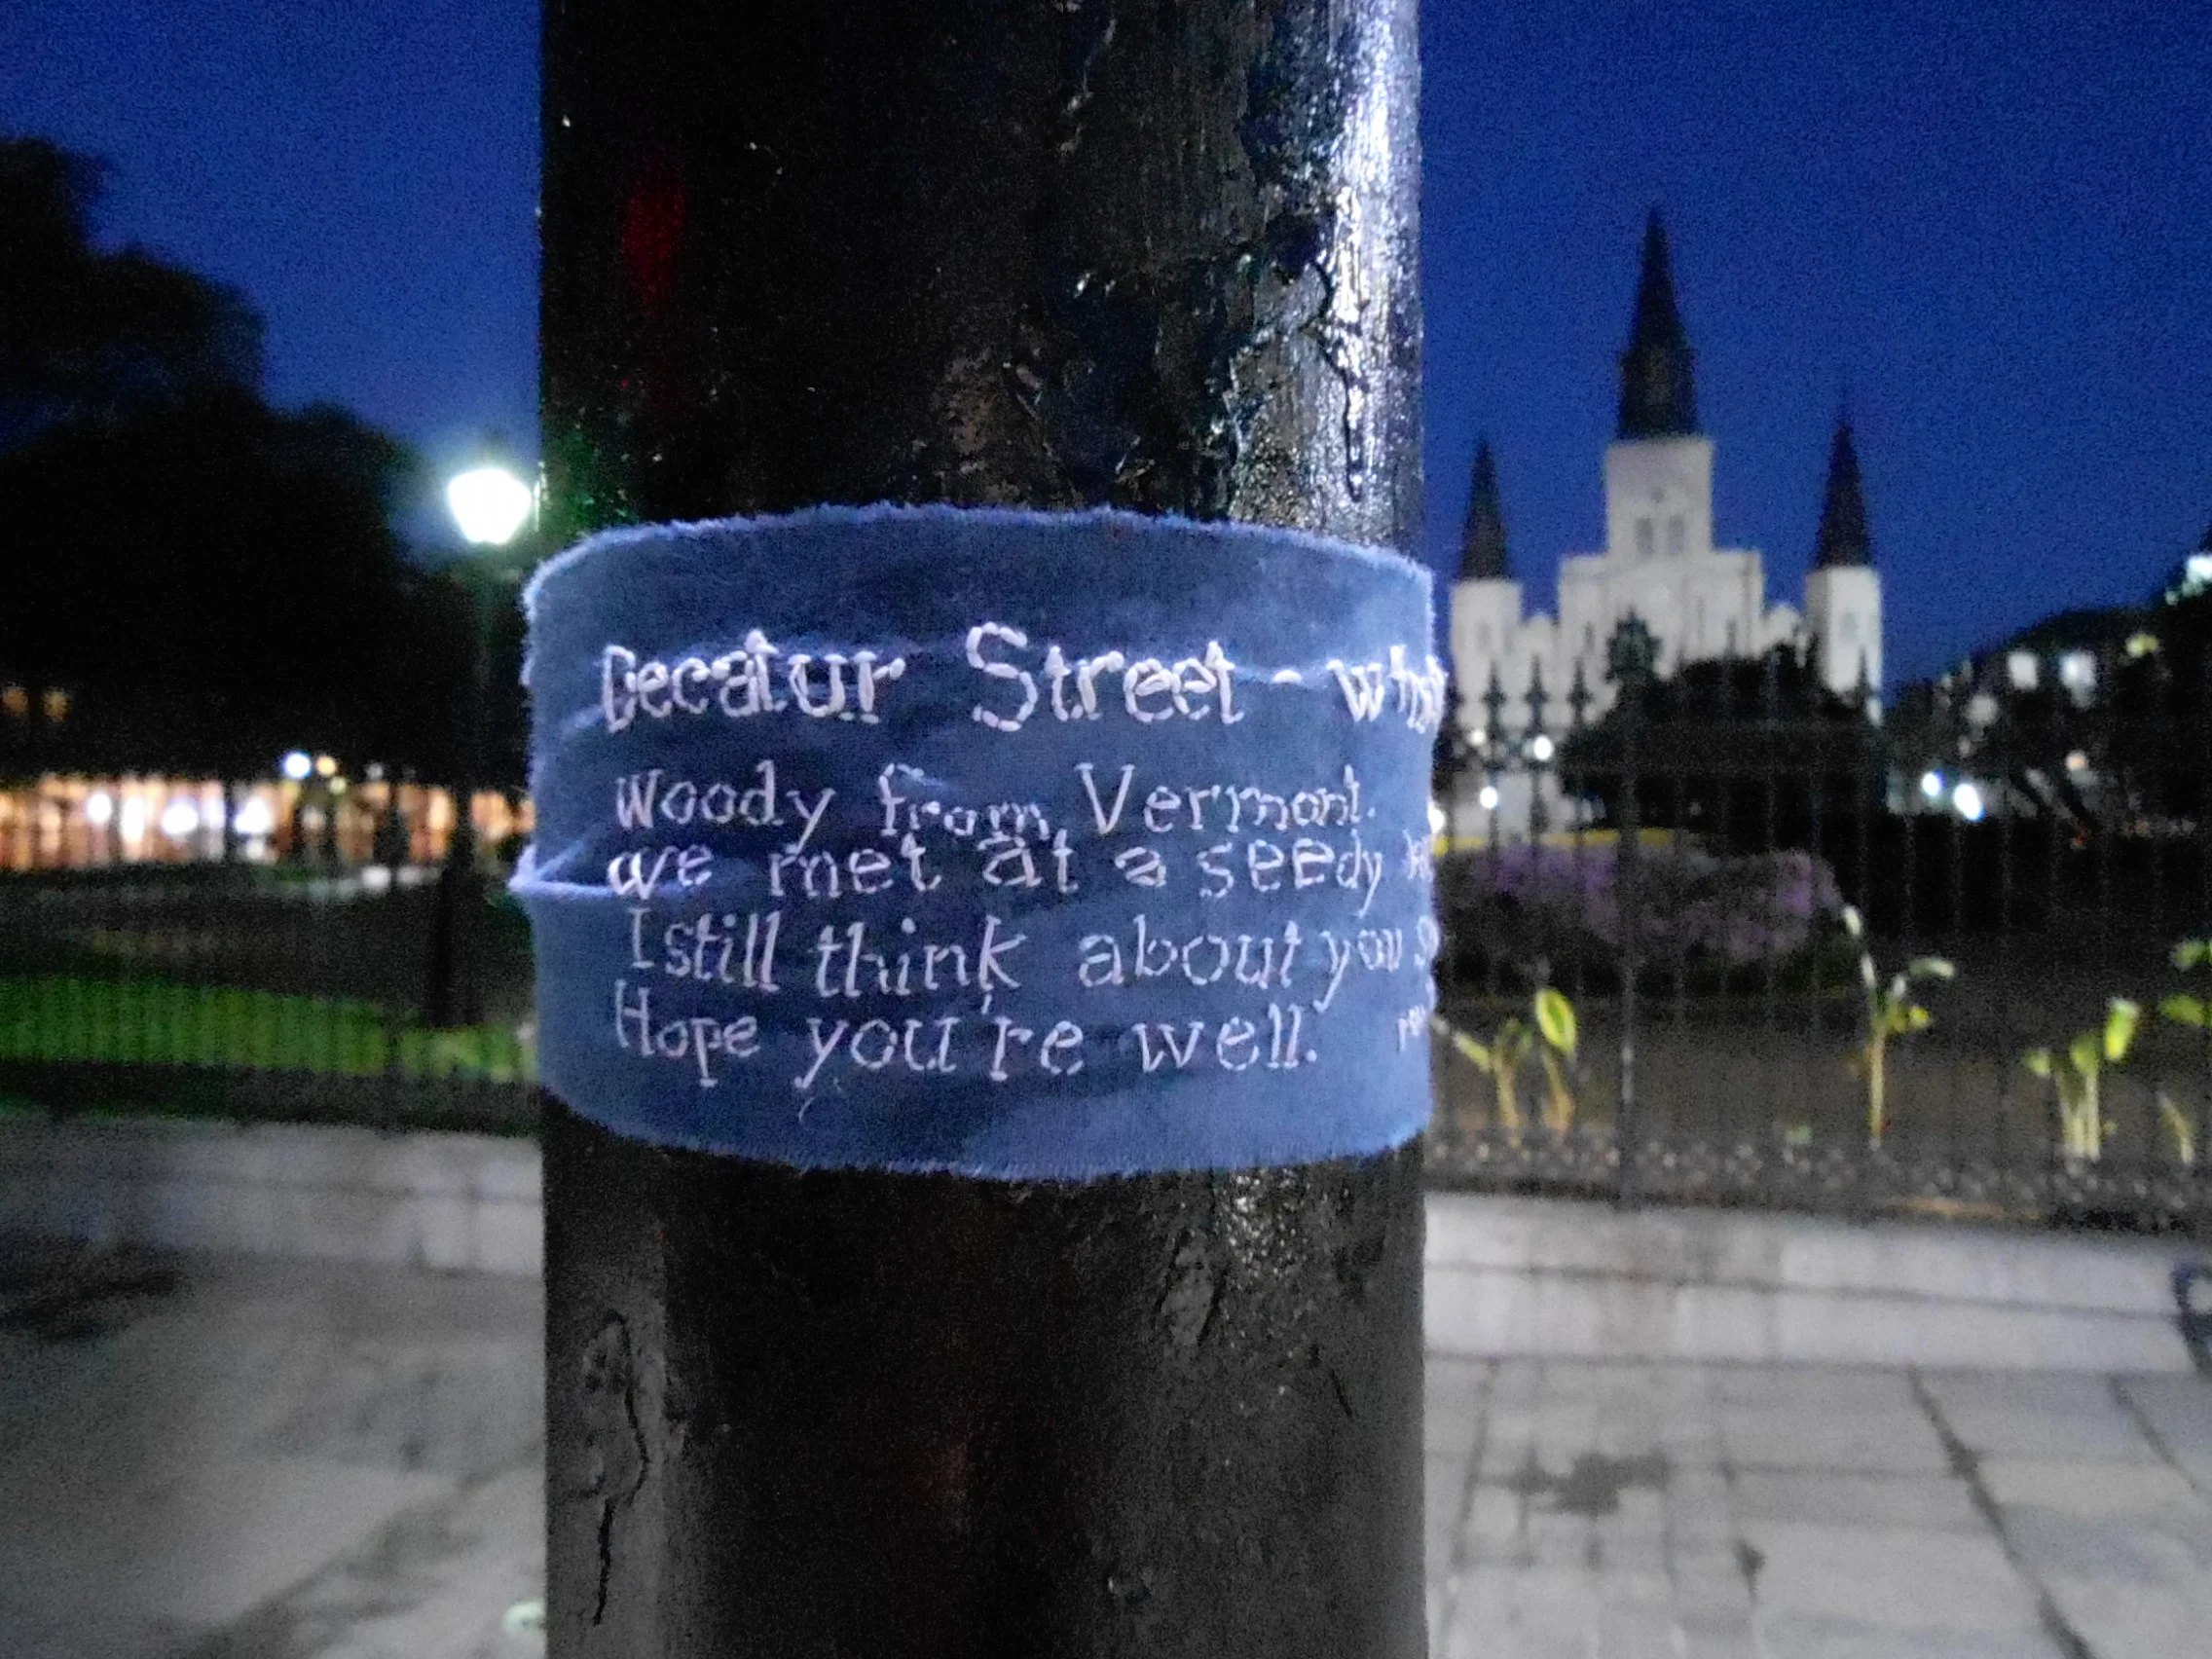 Decatur Street -
Woody from Vermont.
we met at a seedy
I still think about you
Hope you're well.